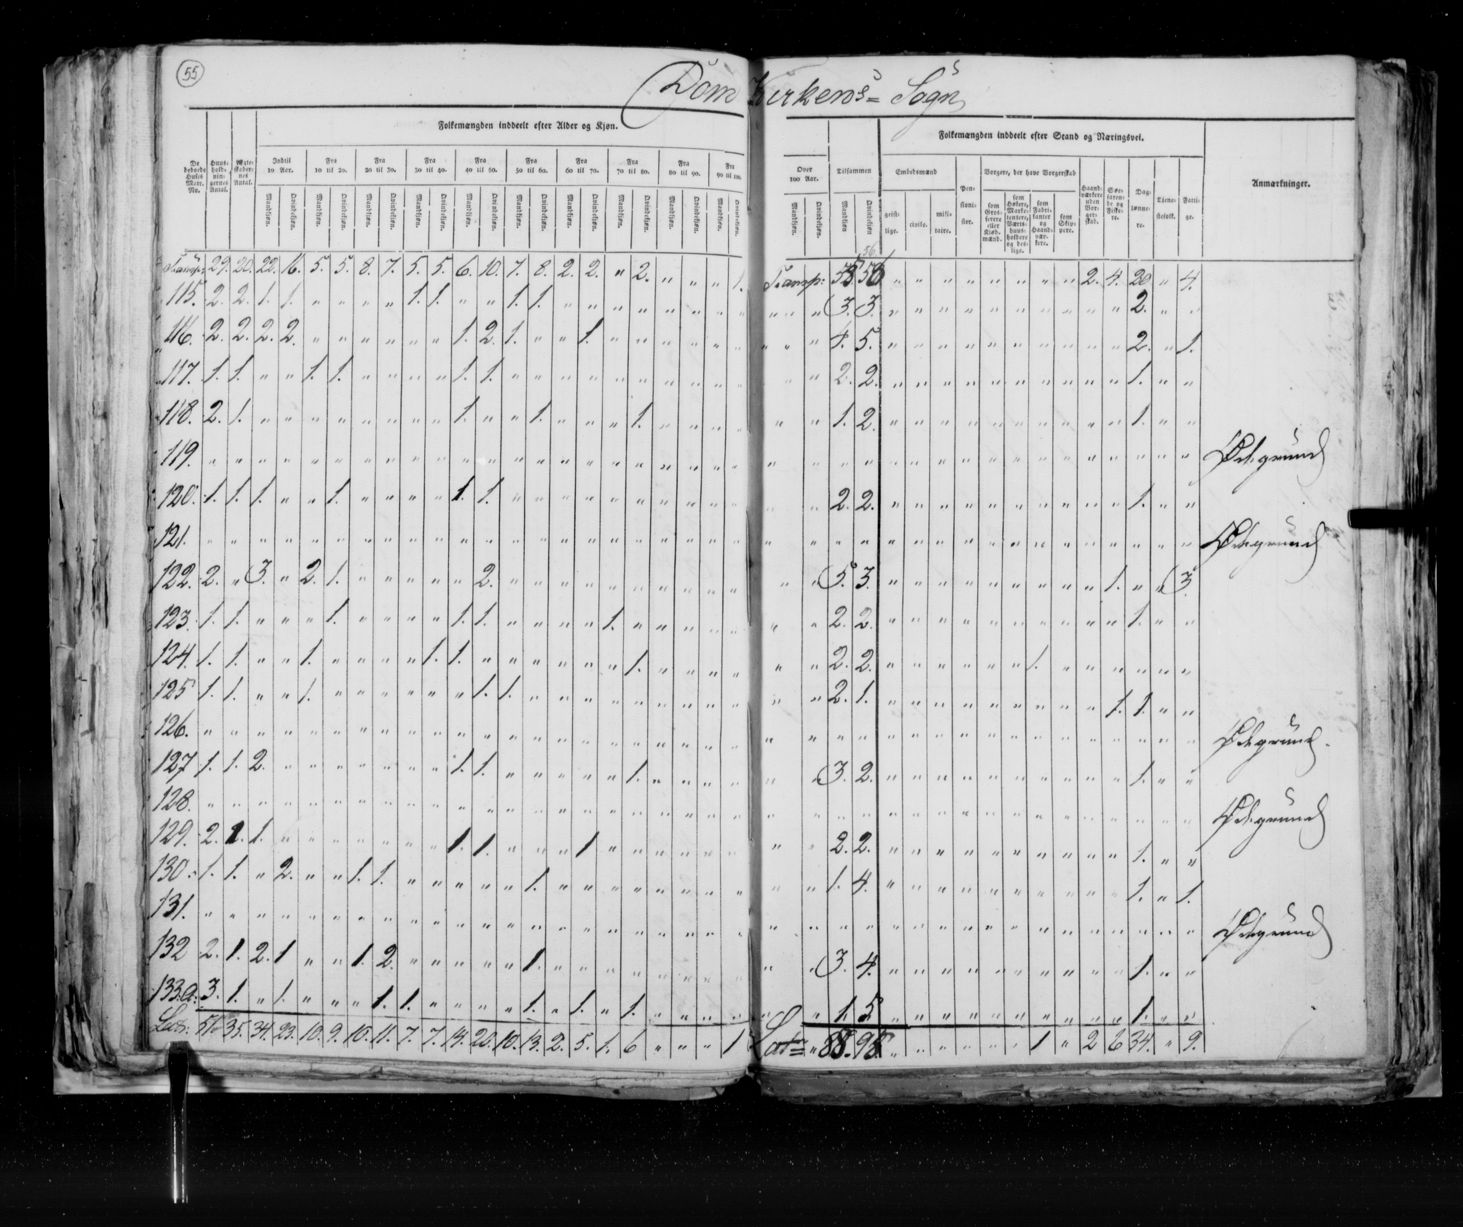 55
Dom Kirkens= Sogn
Folkemængden inddeelt efter Alder og Kjøn.
Folkemængden inddeelt efter Stand og Næringsvei.
De beboede Huses Matr. No.
Huus-holdnin-gernes Antal.
Ægte-skaber-nes Antal.
Indtil 10 Aar.
Fra 10 til 20.
Fra 20 til 30.
Fra 30 til 40.
Fra 40 til 50.
Fra 50 til 60.
Fra 60 til 70.
Fra 70 til 80.
Fra 80 til 90.
Fra 90 til 100.
Over 100 Aar.
Tilsammen
Mandkjøn. Qvindekjøn.
Embedsmænd
geist-lige. civile. mili-taire.
Pen-sioni-ster.
Borgere, der have Borgerskab
som Gros-serere eller Kjøb-mænd.
som Høkere, Marke-tentere, Værts-huus-holdere og des-lige.
som Fabri-kanter og Haand-vær-kere.
som Skip-pere.
Haand-værkere uden Bor-ger-skab.
Søe-farende og Fiske-re.
Dag-lønne-re.
Tjene-stefolk.
Fatti-ge.
Anmærkninger.
Transp: 29. 20. 22. 16. 5. 5. 8. 7. 5. 5. 6. 10. 7. 8. 2. 2. " 2. " " " 1. Transp: 55 56 " " " " " " " " 2. 4. 20 " 4.
115. 2. 2. 1. 1. " " " " 1. 1. " " 1. 1. " " " " " " " " " " 3. 3. " " " " " " " " " " 2. " "
116. 2. 2. 2. 2. " " " " " " 1. 2. 1. " " 1. " " " " " " " " 4. 5. " " " " " " " " " " 2. " 1.
117. 1. 1. " " 1. 1. " " " " 1. 1. " " " " " " " " " " " " 2. 2. " " " " " " " " " " 1. " "
118. 2. 1. " " " " " " " " 1. " " 1. " " " 1. " " " " " " 1. 2. " " " " " " " " " " 1. " "
119. " " " " " " " " " " " " " " " " " " " " " " " " " " " " " " " " " " " " " " " Ødegrund
120. 1. 1. 1. " " 1. " " " " 1. 1. " " " " " " " " " " " " 2. 2. " " " " " " " " " " 1. " "
121. " " " " " " " " " " " " " " " " " " " " " " " " " " " " " " " " " " " " " " " Ødegrund
122. 2. " 3. " 2. 1. " " " " " 2. " " " " " " " " " " " " 5. 3. " " " " " " " " " 1. " " 3.
123. 1. 1. " " " 1. " " " " 1. 1. " " " " 1. " " " " " " " 2. 2. " " " " " " " " " " 1. " "
124. 1. 1. " " 1. " " " " 1. 1. " " " " " " 1. " " " " " " 2. 2. " " " " " " 1. " " " " " "
125 1. 1. " " 1. " " " " " " 1. 1. " " " " " " " " " " " 2. 1. " " " " " " " " " 1. 1. " "
126. " " " " " " " " " " " " " " " " " " " " " " " " " " " " " " " " " " " " " " " Ødegrund.
127 1. 1. 2. " " " " " " " 1. 1. " " " " " 1. " " " " " " 3. 2. " " " " " " " " " " 1. " "
128. " " " " " " " " " " " " " " " " " " " " " " " " " " " " " " " " " " " " " " " Ødegrund
129. 2. 1. 1. " " " " " " " 1. 1. " " " 1 " " " " " " " " 2. 2. " " " " " " " " " " 1. " "
130. 1. 1. " 2. " " 1. 1. " " " " " 1. " " " " " " " " " " 1. 4. " " " " " " " " " " 1. " 1.
131. " " " " " " " " " " " " " " " " " " " " " " " " " " " " " " " " " " " " " " " Ødegrund
132 2. 1. 2. 1 " " 1. 2. " " " " " 1. " " " " " " " " " " 3. 4. " " " " " " " " " " 1. " "
133a. 3. 1. " 1. " " " 1. 1. " " " " 1. " 1. " 1. " " " " " " 1. 5. " " " " " " " " " " 1. " "
Lat. 35. 34. 23. 10. 9. 10. 11. 7. 7. 14. 20. 10. 13. 2. 5. 1. 6 " " " 1 Lat= " 88. 98 " " " " " " 1 " 2 6 34. " 9.